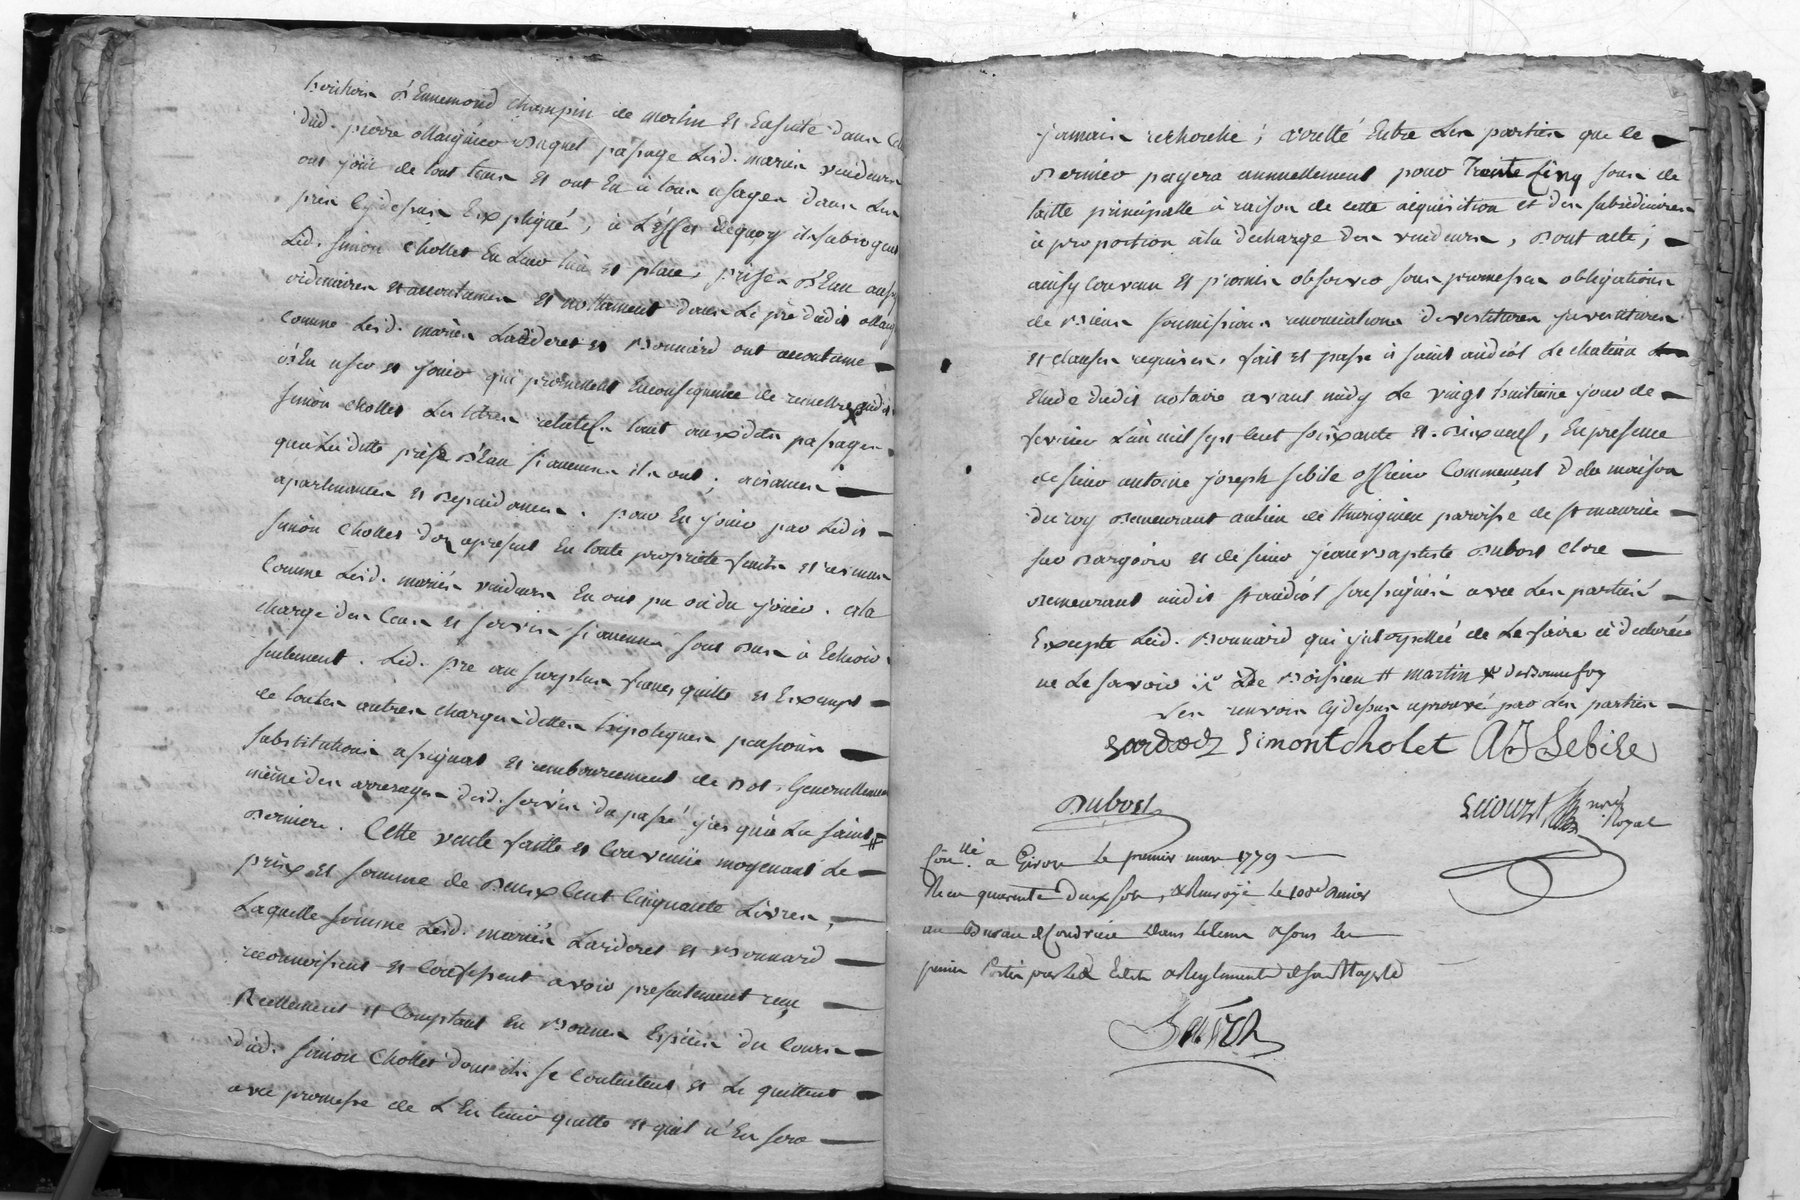 heritiers d'Ennemond champin de morlin et Ensuite dans Celui
dud. pierre ollaignier duquel passage Lesd. mariés vendeurs
ont joüi de tout tems et ont Eu à tous usages dans Les
prés Cydessus Expliqué, à L'Effet dequoy ils subrogent
Led. simon chollet En Leur lieu et place, prises d'Eau aussy
ordinaires et accoutumées et nottament dans Le pré dudit ollaig
Comme Lesd. mariés Larideret et Bonnard ont accoutumé
d'En user et joüir qui promettent Enconsequence de remettre audit
simon chollet Les titres relatifs tant auxdits passages
qu'a Laditte prise d'Eau si aucuns ils ont; aisances
apartenances et dependances. pour En joüir par Ledit
simon chollet dez apresent En toute propriété fruits et revenus
Comme Lesd. mariés vendeurs En ont pu ou du joüir. ala
charge des Cens et servis si aucuns sont dus à Echeoir
seulement. Led. pré au surplus franc quitte et Exempt
de toutes autres charges dettes hipoteques pensions
substitutions assignat et remboursement de dot, Generallement
même des arrerages desd. servis du passé jusqu'a La saint #
derniere. Cette vente faitte et Convenüe moyenant Le
prix et somme de deux Cent Cinquante Livres,
Laquelle somme Lesd. mariés Larideret et Bonnard
reconnoissent et Confessent avoir presentement reçu
Reellement et Comptant En Bonnes Espèces du Cours
dud. simon chollet dont ils se Contentent et Le quittent
avec promesse de L'En tenir quitte et qu'il n'En sera
jamais recherché; arretté Entre Les parties que le
dernier payera annuellement pour Trente Cinq sous de
taille principalle à raison de cette acquisition et des subsidiaires
à proportion àla decharge des vendeurs, dont acte;
ainsy Convenu et promis observer sous promesses obligations
de Biens soumissions renonciations devestitures jnvestitures
et clauses requises, fait et passé à saint andéol Le chateau
Etude dudit notaire avant midy Le vingt huitieme jour de
fevrier L'an mil sept Cent soixante et dixneuf, En presence
de sieur antoine joseph sebile officier Commençal de la maison
du roy demeurant au lieu de paroisse de st maurice
sur Dargoire et de sieur jean Baptiste Dubost clerc
demeurant audit st andéol soussignés avec Les parties
Excepté Lad. Bonnard qui jnterpellée de Le faire a declaré
ne Le savoir de Boisieu # martin x de Bonnefoy
Les renvois Cydessus aprouvé par Les parties
Simontcholet AJ Sebile
Dubost
not. Royal
Con.llé a Givors Le premier mars 1779
Recu quarante Deux sols, & Renvoyé Le 100e Denier
au Bureau de Condrieu dans Le tems & sous les
peines Portés par les Edits & Reglements de sa Majesté